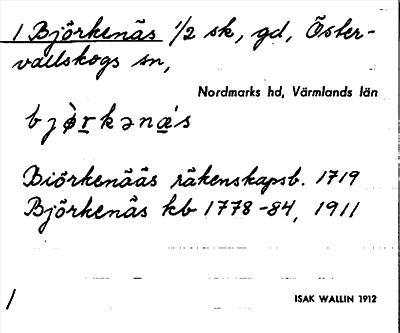 1 Björkenäs 1/2 sk, gd, Öster-
vallskogs sn,
Nordmarks hd, Värmlands län
bjø̀rkənæ´s
Biörkenääs räkenskapsb. 1719
Björkenäs kb 1778-84, 1911
1
ISAK WALLIN 1912